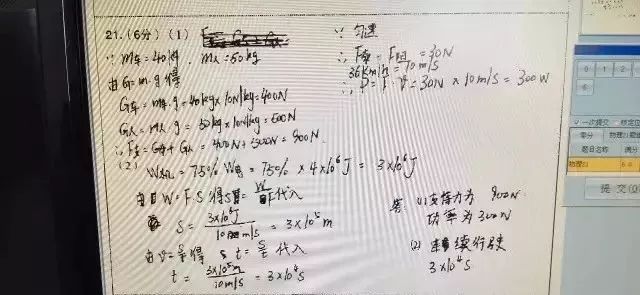 21.(6分)(1)
∵ m车=40kg, m人=50kg
由G=m·g得
G车=m车·g=40kg×10N/kg=400N
G人=m人·g=50kg×10N/kg=500N
∴F支=G车+G人=400N+500N=900N
(2)
W机=75%W电=75%×4×10⁶J=3×10⁶J
由W=F·S得S=代入
S=3×10⁶J/m/s=3×10⁵m
由v=s/t得t=代入
t=3×10⁵m/10m/s=3×10⁴s
∵匀速
∴F牵=F阻=30N
36km/h=10m/s
∴P=F·v=30N×10m/s=300W
答:(1)支持力为900N
功率为300W
(2)续行驶
3×10⁴s
0 1 2
6
一次提交
零分 物理21
题目名称 满分
物理21 6.0
提交(Q